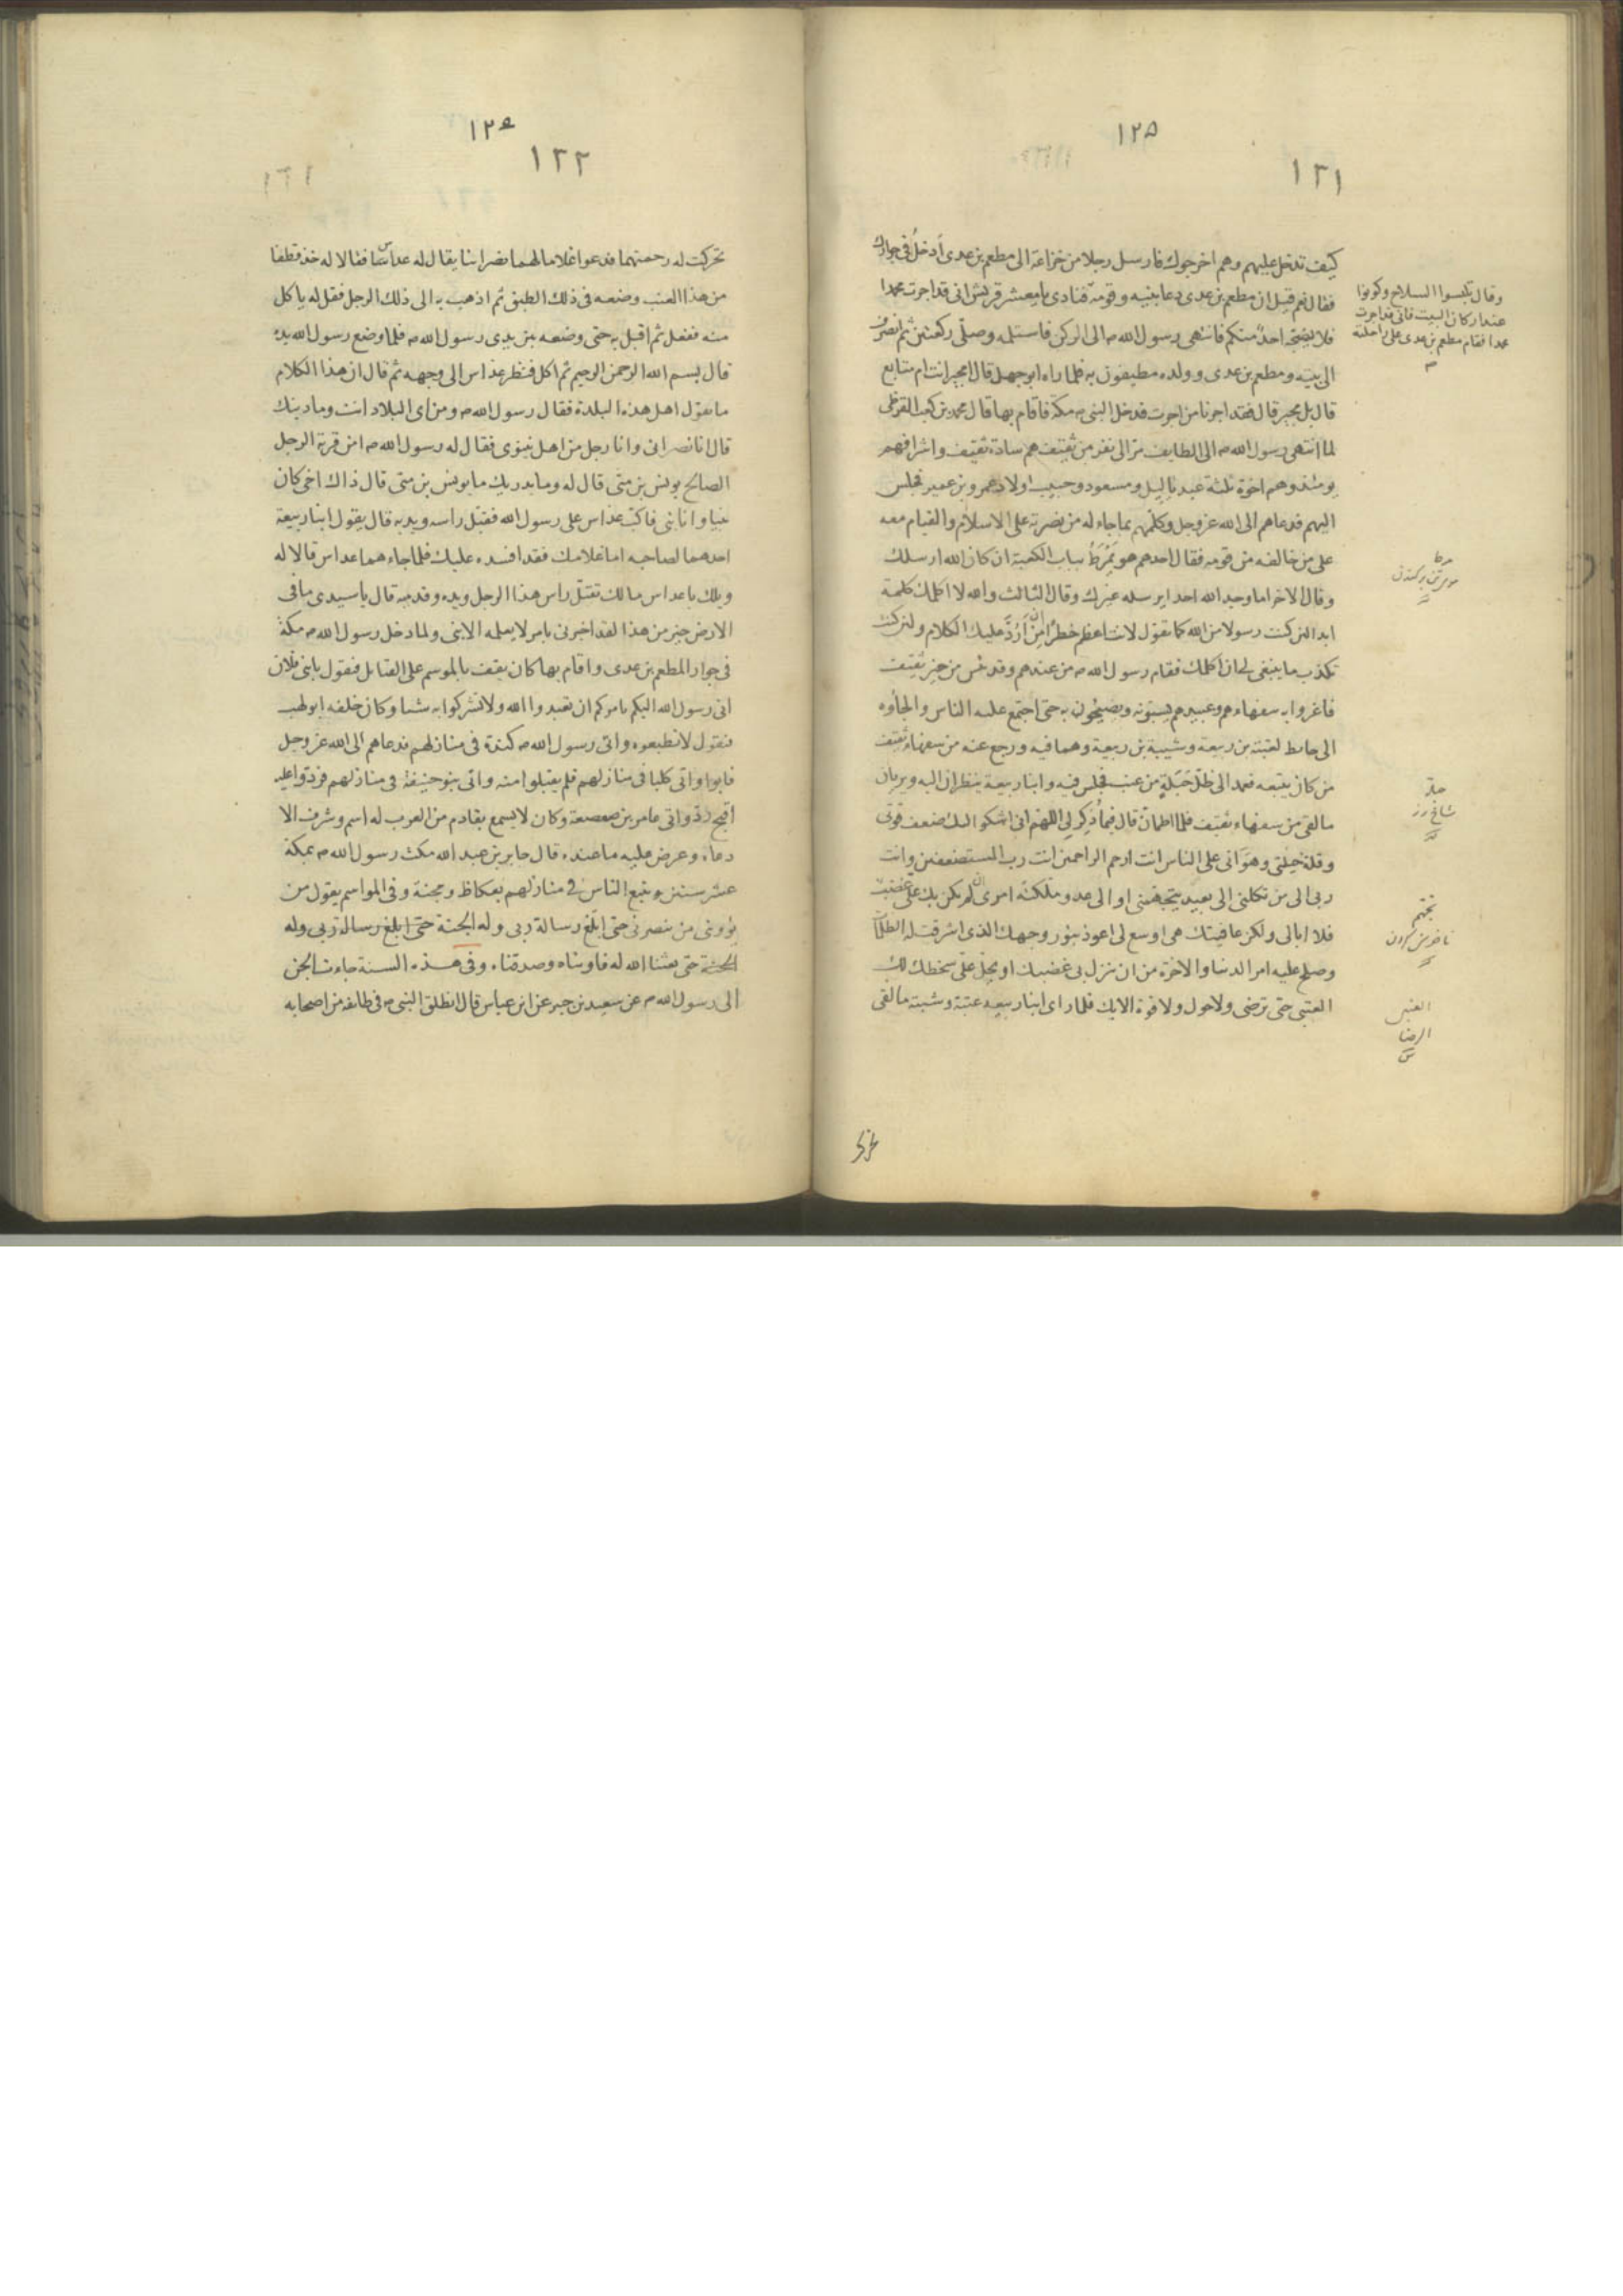 ١٢٥
١٢١
كيف تدخل عليهم وهم اخرجوك فارسل رجلا من خزاعة الى مطعم بن عدى أدخل فى جوارك
فقال نعم قيل ان مطعم بن عدى دعا بنيه وقومه فنادى يا معشر قريش انى قد اجرت محمدا
فلا يهجه احد منكم فانتهى رسول الله ص الى الركن فاستلمه وصلى ركعتين ثم انصرف
الى بيته ومطعم بن عدى وولده مطيفون به فلما راه ابو جهل قال امجير انت ام متابع
قال بل مجير قال فقد اجرنا من اجرت فدخل النبى ص مكة فاقام بها قال محمد بن كعب القرظى
لما انتهى رسول الله ص الى الطايف مر الى نفر من ثقيف هم سادة ثقيف واشرافهم
يومئذ وهم اخوة ثلثة عبد ياليل ومسعود وحبيب اولاد عمرو بن عمير فجلس
اليهم فدعاهم الى الله عز وجل وكلمهم بما جاء له من نصرته على الاسلام والقيام معه
على من خالفه من قومه فقال احدهم هو يمرط بباب الكعبة ان كان الله ارسلك
وقال الاخر اما وجد الله احدا يرسله غيرك وقال الثالث والله لا اكلمك كلمة
ابدا لئن كنت رسولا من الله كما تقول لانت اعظم خطرا من ان أرد عليك الكلام ولئن كنت
تكذب ما ينبغى لى ان اكلمك فقام رسول الله ص من عندهم وقد يئس من خير ثقيف
فاغروا به سفهاءهم وعبيدهم يسبونه ويصيحون به حتى اجتمع عليه الناس والجأوه
الى حايط لعتبة بن ربيعة وشيبة بن ربيعة وهما فيه ورجع عنه من سفهاء ثقيف
من كان يتبعه فعمد الى ظل حبلة من عنب فجلس فيه وابنا ربيعة ينظران اليه ويريان
ما لقى من سفهاء ثقيف فلما اطمان قال فيما ذكر لى اللهم انى اشكو اليك ضعف قوتى
وقلة حيلتى وهوانى على الناس انت ارحم الراحمين انت رب المستضعفين وانت
ربى الى من تكلنى الى بعيد يتجهمنى او الى عدو ملكته امرى ان لم يكن بك على غضب
فلا ابالى ولكن عافيتك هى اوسع لى اعوذ بنور وجهك الذى اشرقت له الظلمات
وصلح عليه امر الدنيا والاخرة من ان تنزل بى غضبك او يحل على سخطك لك
العتبى حتى ترضى ولا حول ولا قوة الا بك فلما راى ابنا ربيعة عتبة وشيبة ما لقى
وقال تلبسوا السلاح وكونوا
عند اركان البيت فانى قد اجرت
محمدا فقام مطعم بن عدى على راحلته
مرط
بركندن
حبلة
شاخ رز
تجهم
العتبى
الرضا
تحركت
١٢٦
١٢٢
تحركت له رحمتهما فدعوا غلاما لهما نصرانيا يقال له عداس فقالا له خذ قطفا
من هذا العنب وضعه فى ذلك الطبق ثم اذهب به الى ذلك الرجل فقل له ياكل
منه ففعل ثم اقبل به حتى وضعه بين يدى رسول الله ص فلما وضع رسول الله يده
قال بسم الله الرحمن الرحيم ثم اكل فنظر عداس الى وجهه ثم قال ان هذا الكلام
ما يقول اهل هذه البلدة فقال رسول الله ص ومن اى البلاد انت وما دينك
قال انا نصرانى وانا رجل من اهل نينوى فقال له رسول الله ص امن قرية الرجل
الصالح يونس بن متى قال له وما يدريك ما يونس بن متى قال ذاك اخى كان
نبيا وانا نبى فاكب عداس على رسول الله فقبل راسه ويديه قال يقول ابنا ربيعة
احدهما لصاحبه اما غلامك فقد افسده عليك فلما جاءهما عداس قالا له
ويلك يا عداس مالك تقبل راس هذا الرجل ويده وقدميه قال يا سيدى ما فى
الارض خير من هذا لقد اخبرنى بامر لا يعلمه الا نبى ولما دخل رسول الله ص مكة
فى جوار المطعم بن عدى واقام بها كان يقف بالموسم على القبايل فيقول يا بنى فلان
انى رسول الله اليكم يامركم ان تعبدوا الله ولا تشركوا به شيئا وكان خلفه ابو لهب
فيقول لا تطيعوه واتى رسول الله ص كندة فى منازلهم فدعاهم الى الله عز وجل
فابوا واتى كلبا فى منازلهم فلم يقبلوا منه واتى بنو حنيفة فى منازلهم فردوا عليه
اقبح رد واتى عامر بن صعصعة وكان لا يسمع بقادم من العرب له اسم وشرف الا
دعاه وعرض عليه ما عنده قال جابر بن عبد الله مكث رسول الله ص بمكة
عشر سنين يتبع الناس فى منازلهم بعكاظ ومجنة وفى المواسم يقول من
يؤوينى من ينصرنى حتى ابلغ رسالة ربى وله الجنة حتى ابلغ رسالة ربى وله
الجنة حتى بعثنا الله له فاويناه وصدقناه وفى هذه السنة جاءت الجن
الى رسول الله ص عن سعيد بن جبير عن ابن عباس قال انطلق النبى ص فى طائفة من اصحابه